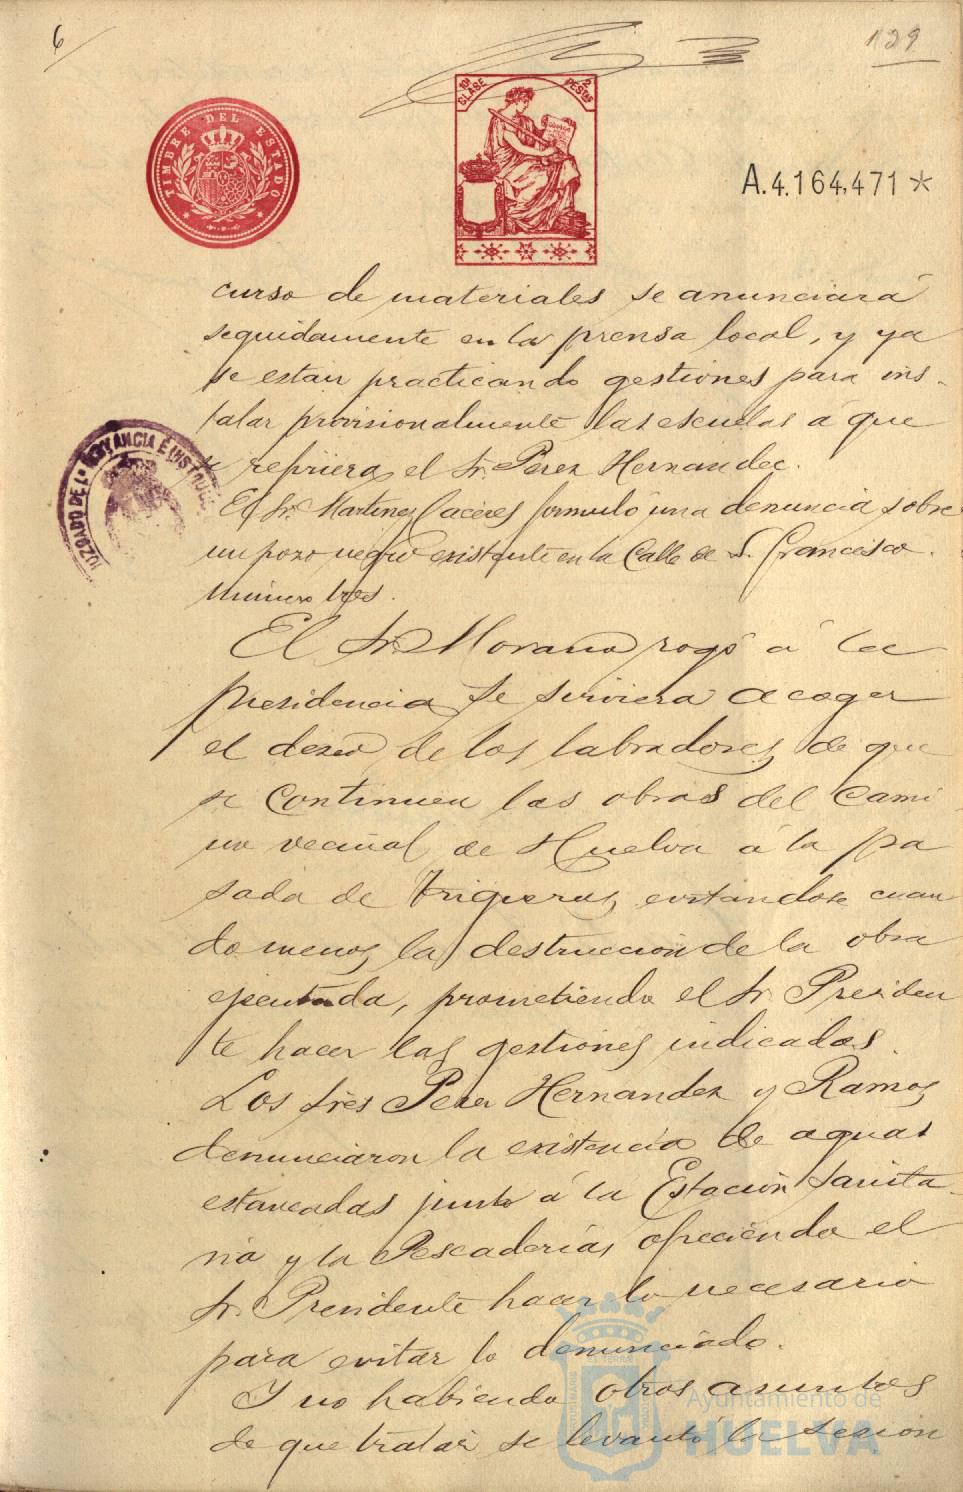 6
129
TIMBRE DEL ESTADO
10ª CLASE
2 PESTAS
A.4.164,471*
curso de materiales se anunciará
seguidamente en la prensa local, y ya
se estan practicando gestiones para ins-
talar provisionalmente las escuelas á que
se refriera el Sr. Perez Hernandez.
JUZGADO DE 1ª INSTANCIA É INSTRUC
El Sr. Martinez Caceres formuló una denuncia sobre
un pozo negro existente en la Calle de S. Francisco
número tres.
El Sr. Morano rogó á la
presidencia se sirviera acoger
el deseo de los labradores de que
se continuen las obras del cami
no vecinal de Huelva á la pa
sada de Trigueros, evitandose cuan
do menos la destruccion de la obra
ejecutada, prometiendo el Sr. Presiden
te hacer las gestiones indicadas.
Los Sres Perez Hernandez y Ramos
denunciaron la existencia de aguas
estancadas junto á la Estación Sanita-
ria y la Pescadería, ofreciendo el
Sr. Presidente hacer lo necesario
para evitar lo denunciado.
Y no habiendo otros asuntos
de que tratar se levantó la sesion
Ayuntamiento de
HUELVA